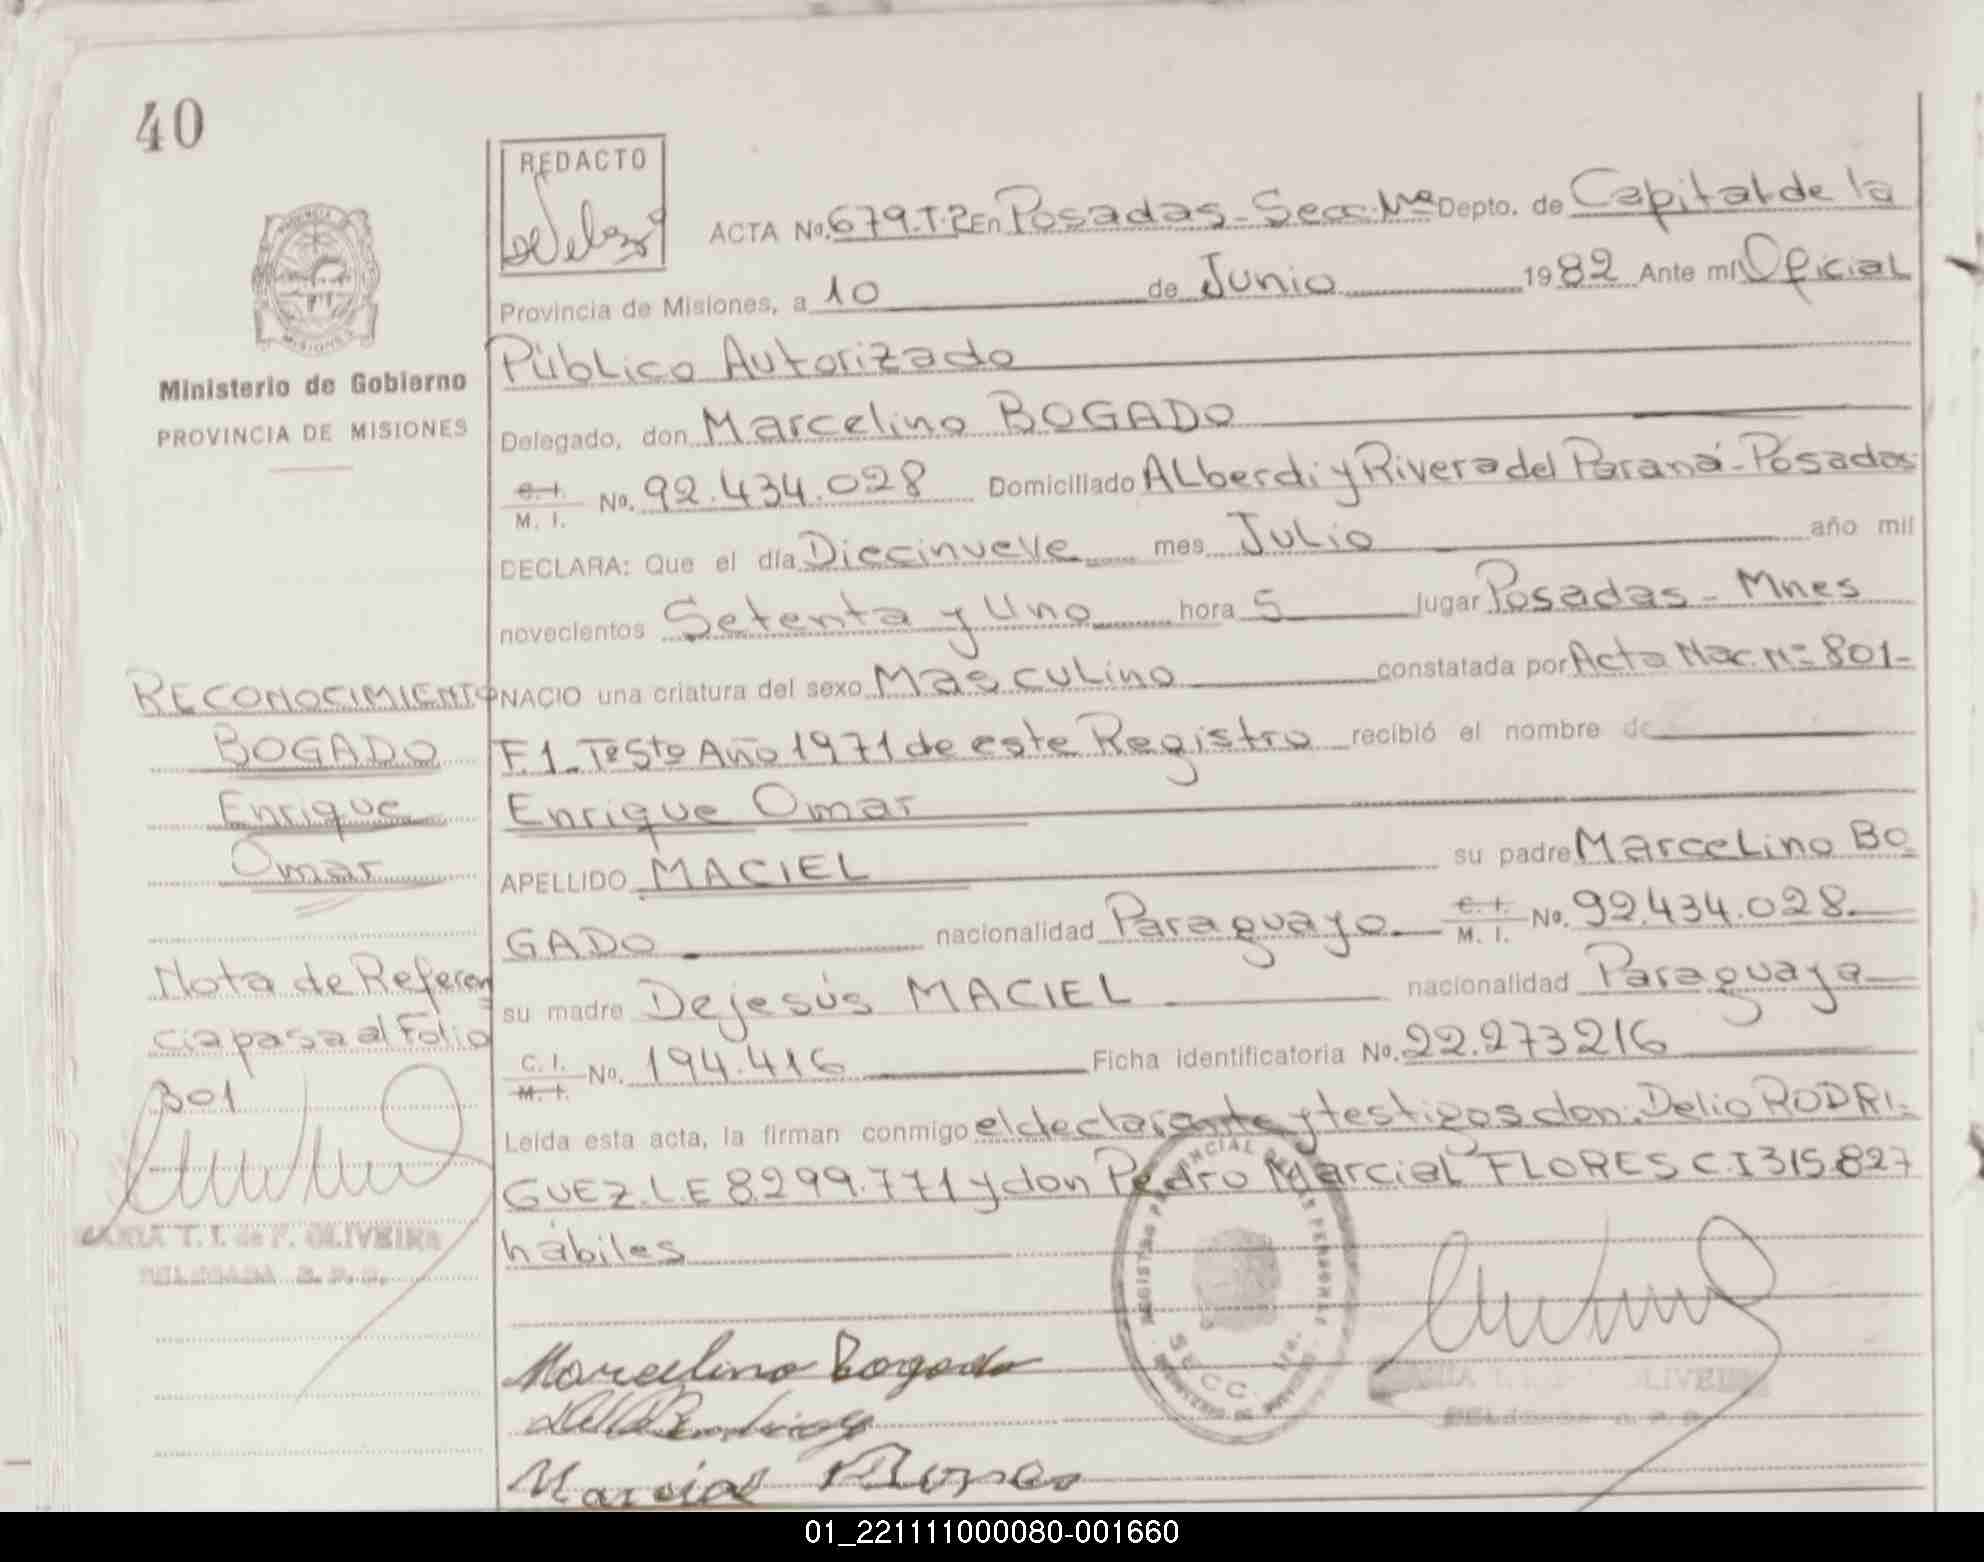 40
REDACTO
ACTA No. 679.T.2 En Posadas - Secc. 1ra Depto. de Capital de la
Provincia de Misiones, a 10 de Junio 1982 Ante mí Oficial
Público Autorizado
Delegado, don Marcelino BOGADO
C. I. / M. I. No. 92.434.028 Domiciliado Alberdi y Rivera del Paraná - Posadas
DECLARA: Que el día Diecinueve mes Julio año mil
novecientos Setenta y Uno hora 5 lugar Posadas - Mnes
NACIO una criatura del sexo Masculino constatada por Acta Nac. Nº 801-
F.1 - Tº 5to Año 1971 de este Registro recibió el nombre de
Enrique Omar
APELLIDO MACIEL su padre Marcelino BO
GADO nacionalidad Paraguayo C. I. / M. I. No. 92.434.028
su madre Dejesús MACIEL nacionalidad Paraguaya
C. I. / M. I. No. 194.416 Ficha identificatoria No. 22.273216
Leída esta acta, la firman conmigo el declarante y testigos don: Delio RODRI-
GUEZ. L.E 8.299.771 y don Pedro Marcial FLORES C.I 315.827
hábiles
Marcelino Bogado
Marcial Flores
PROVINCIA
MISIONES
Ministerio de Gobierno
PROVINCIA DE MISIONES
RECONOCIMIENTO
BOGADO
Enrique
Omar
Nota de Referen
cia pasa al Folio
301
MARIA T. I. de F. OLIVEIRA
DELEGADA R. P. P.
REGISTRO PROVINCIAL DE LAS PERSONAS
SECC. 1ra.
OLIVEIRA
01_221111000080-001660